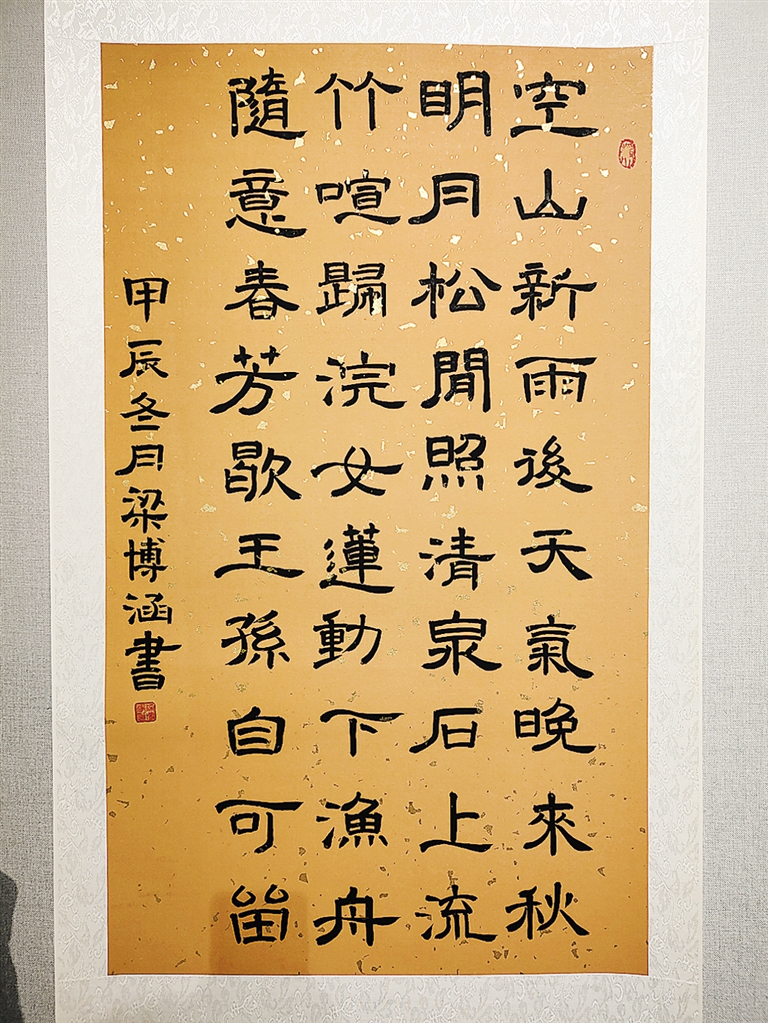 空山新雨後天氣晚來秋
明月松間照清泉石上流
竹喧歸浣女蓮動下漁舟
隨意春芳歇王孫自可留
甲辰冬月梁博涵書